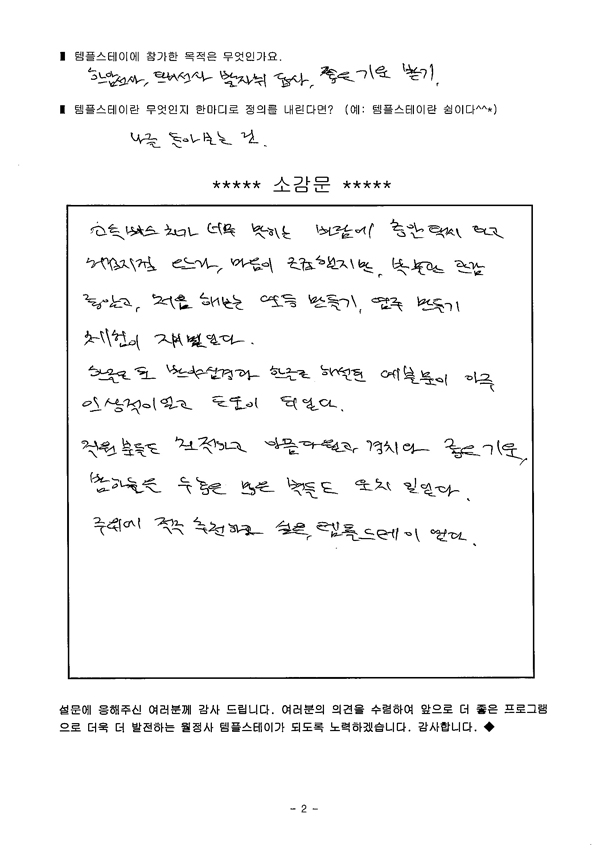 ▮ 템플스테이에 참가한 목적은 무엇인가요.
한암선사, 탄허선사 발자취 답사, 좋은 기운 받기.
▮ 템플스테이란 무엇인지 한마디로 정의를 내린다면? (예: 템플스테이란 쉼이다^^*)
나를 돌아보는 건.
***** 소감문 *****
고속버스 차가 너무 막히는 바람에 중간 택시 타고
오느라, 마음이 급했지만,
좋았고, 처음 해보는 연등 만들기, 염주 만들기
체험이 재밌었다.
한글로 된 반야심경과 한글로 해석된 예불문이 아주
인상적이었고 도움이 되었다.
직원분들도 친절하고 아름다웠고, 경치와 좋은 기운,
밤하늘을 수놓은 많은 별들도 멋지 였다.
주위에 적극 추천하고 싶은, 템플스테이 였다.
설문에 응해주신 여러분께 감사 드립니다. 여러분의 의견을 수렴하여 앞으로 더 좋은 프로그램
으로 더욱 더 발전하는 월정사 템플스테이가 되도록 노력하겠습니다. 감사합니다. ◆
- 2 -